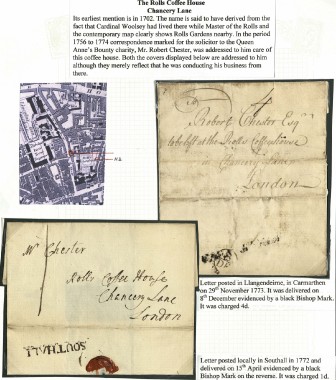 The Rolls Coffee House
Chancery Lane
Its earliest mention is in 1702. The name is said to have derived from the
fact that Cardinal Woolsey had lived there while Master of the Rolls and
the contemporary map clearly shows Rolls Gardens nearby. In the period
1756 to 1774 correspondence marked for the solicitor to the Queen
Anne's Bounty charity, Mr. Robert Chester, was addressed to him care of
this coffee house. Both the covers displayed below are addressed to him
although they merely reflect that he was conducting his business from
there.
To
Robert Chester Esqr
to be left at the Rolls Coffeehouse
in Chancery Lane
London
Mr Chester
Rolls Coffee House
Chancery Lane
London
SOUTHALL
Letter posted in Llangendeirne, in Carmarthen
on 29th November 1773. It was delivered on
8th December evidenced by a black Bishop Mark.
It was charged 4d.
Letter posted locally in Southall in 1772 and
delivered on 15th April evidenced by a black
Bishop Mark on the reverse. It was charged 1d.